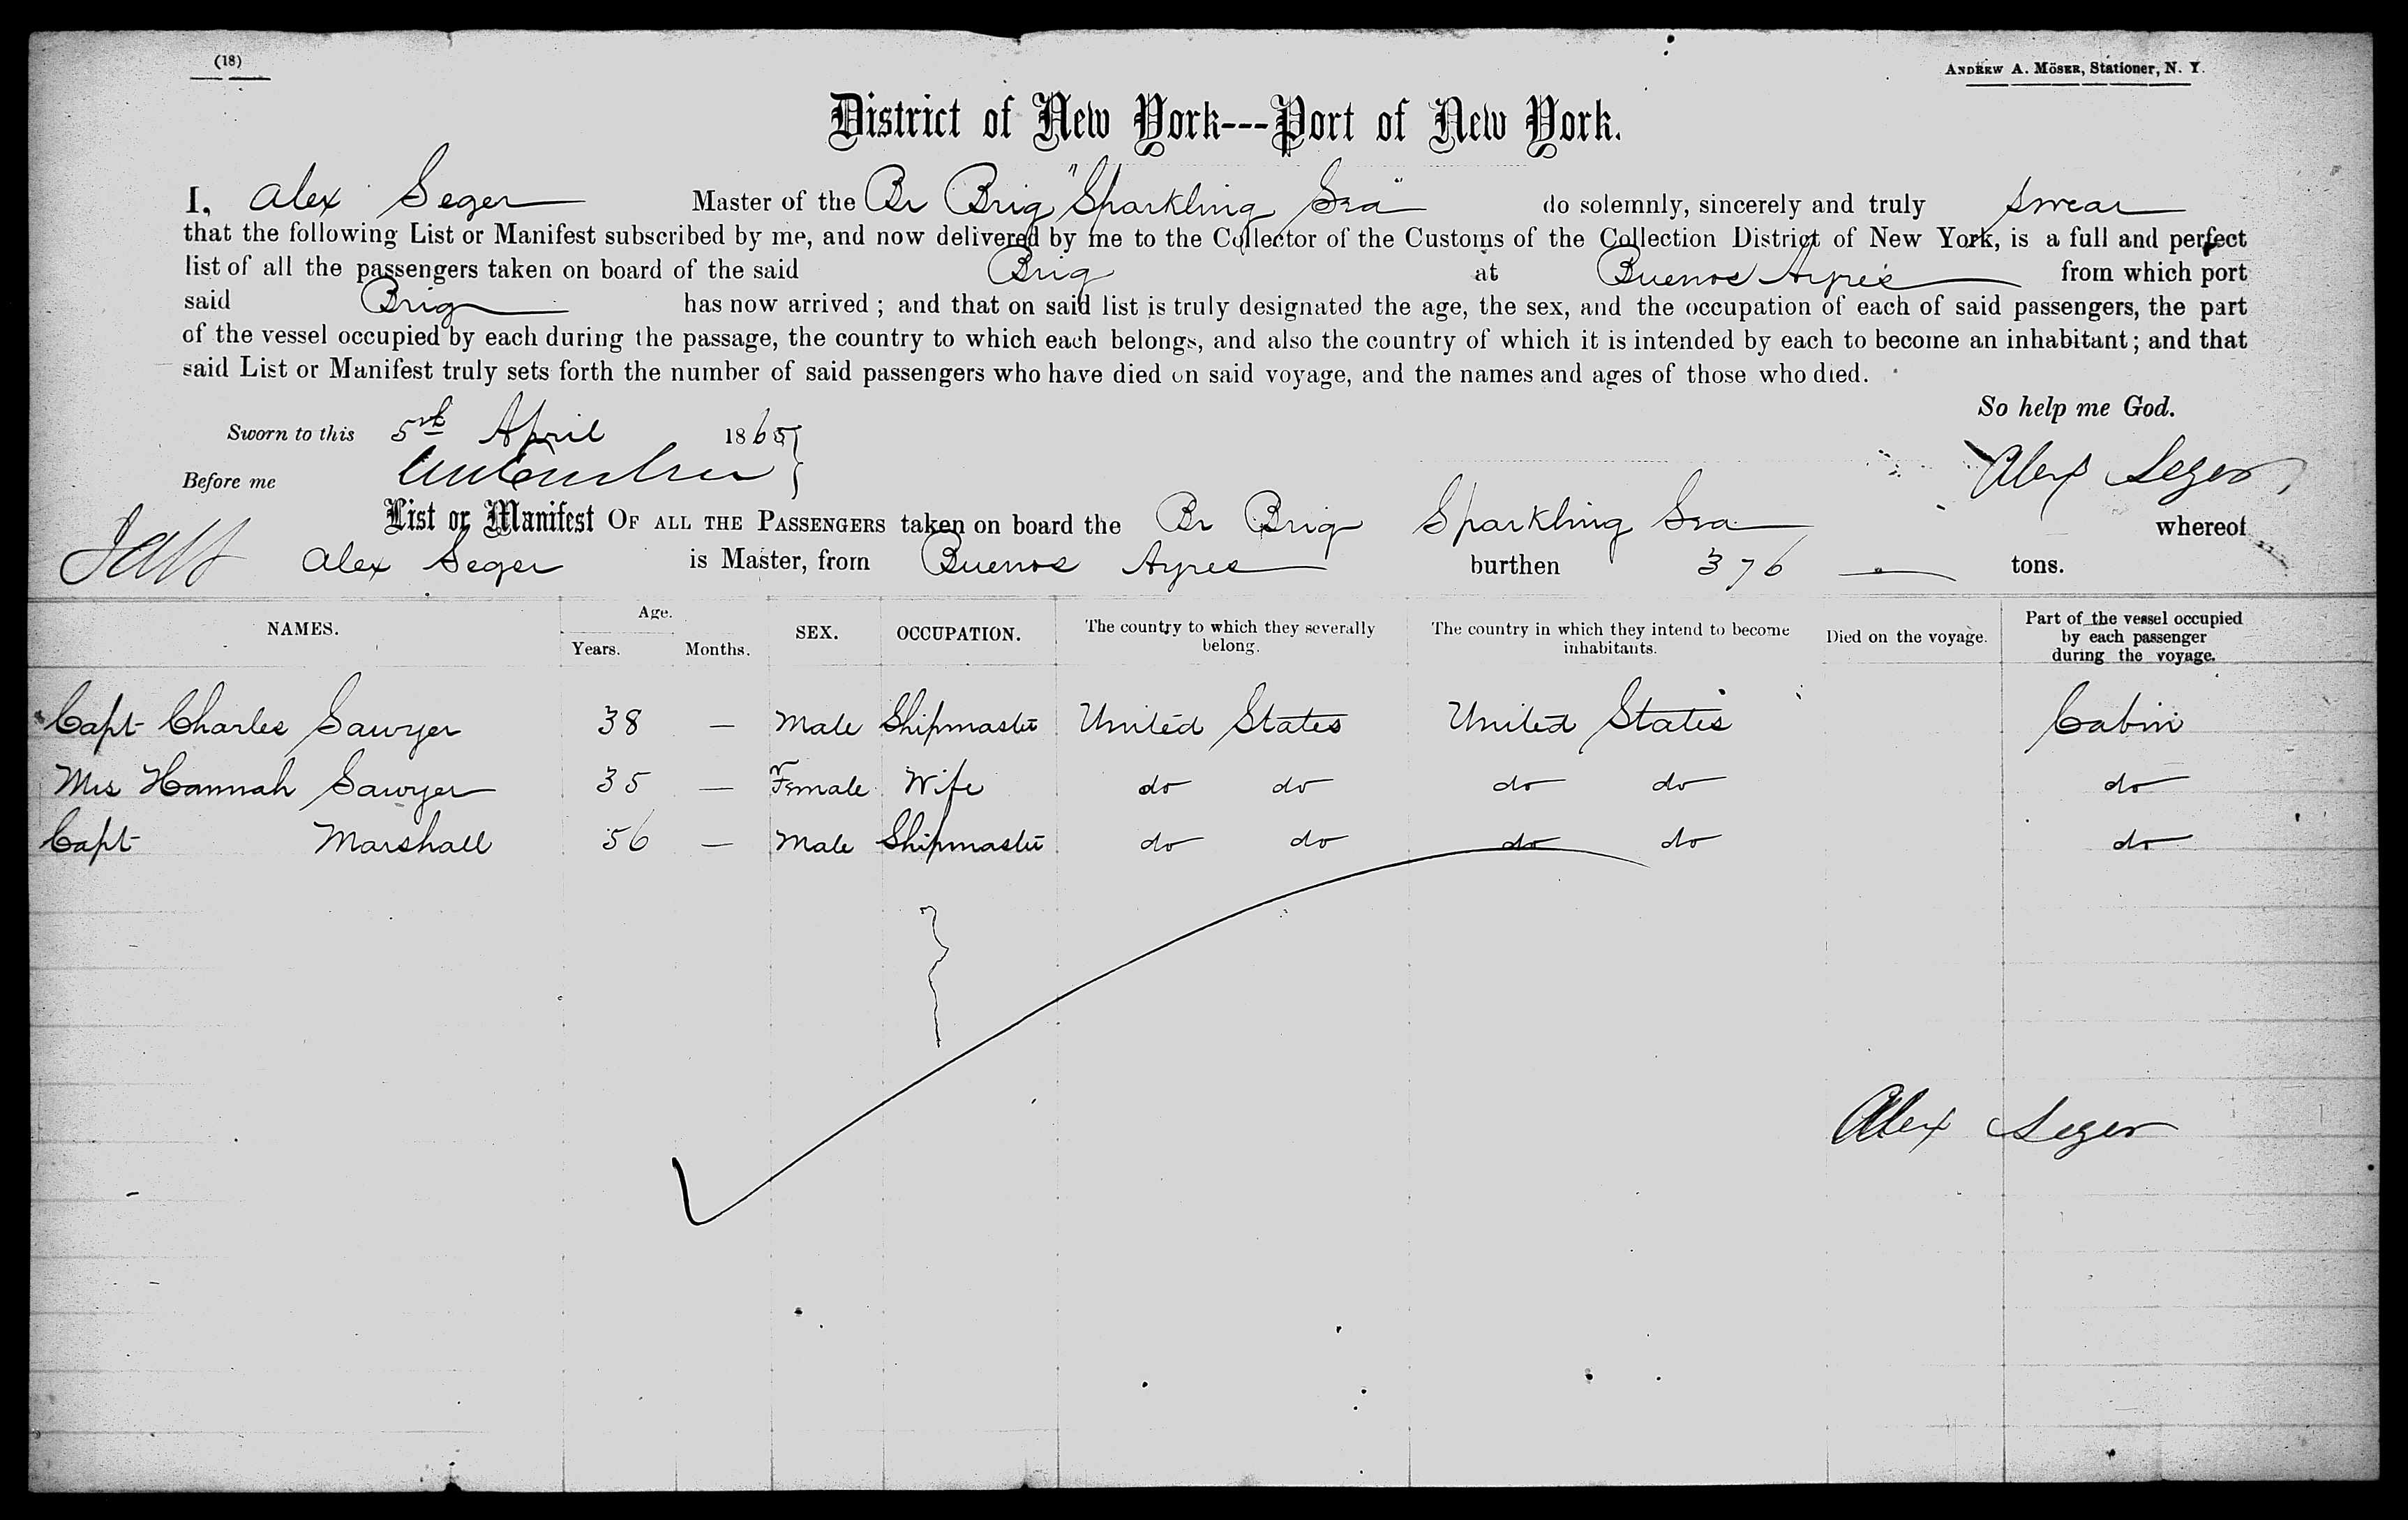 (18)
ANDREW A. MÖSER, Stationer, N. Y.
District of New York---Port of New York.
I, Alex Seger Master of the Br Brig "Sparkling Sea" do solemnly, sincerely and truly swear
that the following List or Manifest subscribed by me, and now delivered by me to the Collector of the Customs of the Collection District of New York, is a full and perfect
list of all the passengers taken on board of the said Brig at Buenos Ayres from which port
said Brig has now arrived; and that on said list is truly designated the age, the sex, and the occupation of each of said passengers, the part
of the vessel occupied by each during the passage, the country to which each belongs, and also the country of which it is intended by each to become an inhabitant; and that
said List or Manifest truly sets forth the number of said passengers who have died on said voyage, and the names and ages of those who died.
So help me God.
Sworn to this 5th April 1865
Alex Seger
Before me
List or Manifest OF ALL THE PASSENGERS taken on board the Br Brig Sparkling Sea whereof
Alex Seger is Master, from Buenos Ayres burthen 376 tons.
NAMES. Age. Years. Months. SEX. OCCUPATION. The country to which they severally belong. The country in which they intend to become inhabitants. Died on the voyage. Part of the vessel occupied by each passenger during the voyage.
Capt Charles Sawyer 38 — Male Shipmaster United States United States Cabin
Mrs Hannah Sawyer 35 — Female Wife do do do do do
Capt Marshall 56 — Male Shipmaster do do do do do
Alex Seger